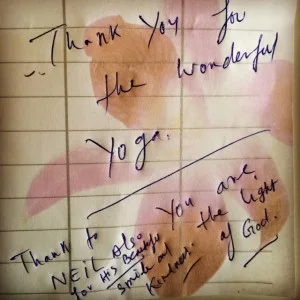 Thank You for
the wonderful
Yoga.
You are
the light
of God.
Thank to
NEIL also
for His Beautiful
smile and
Kindness.